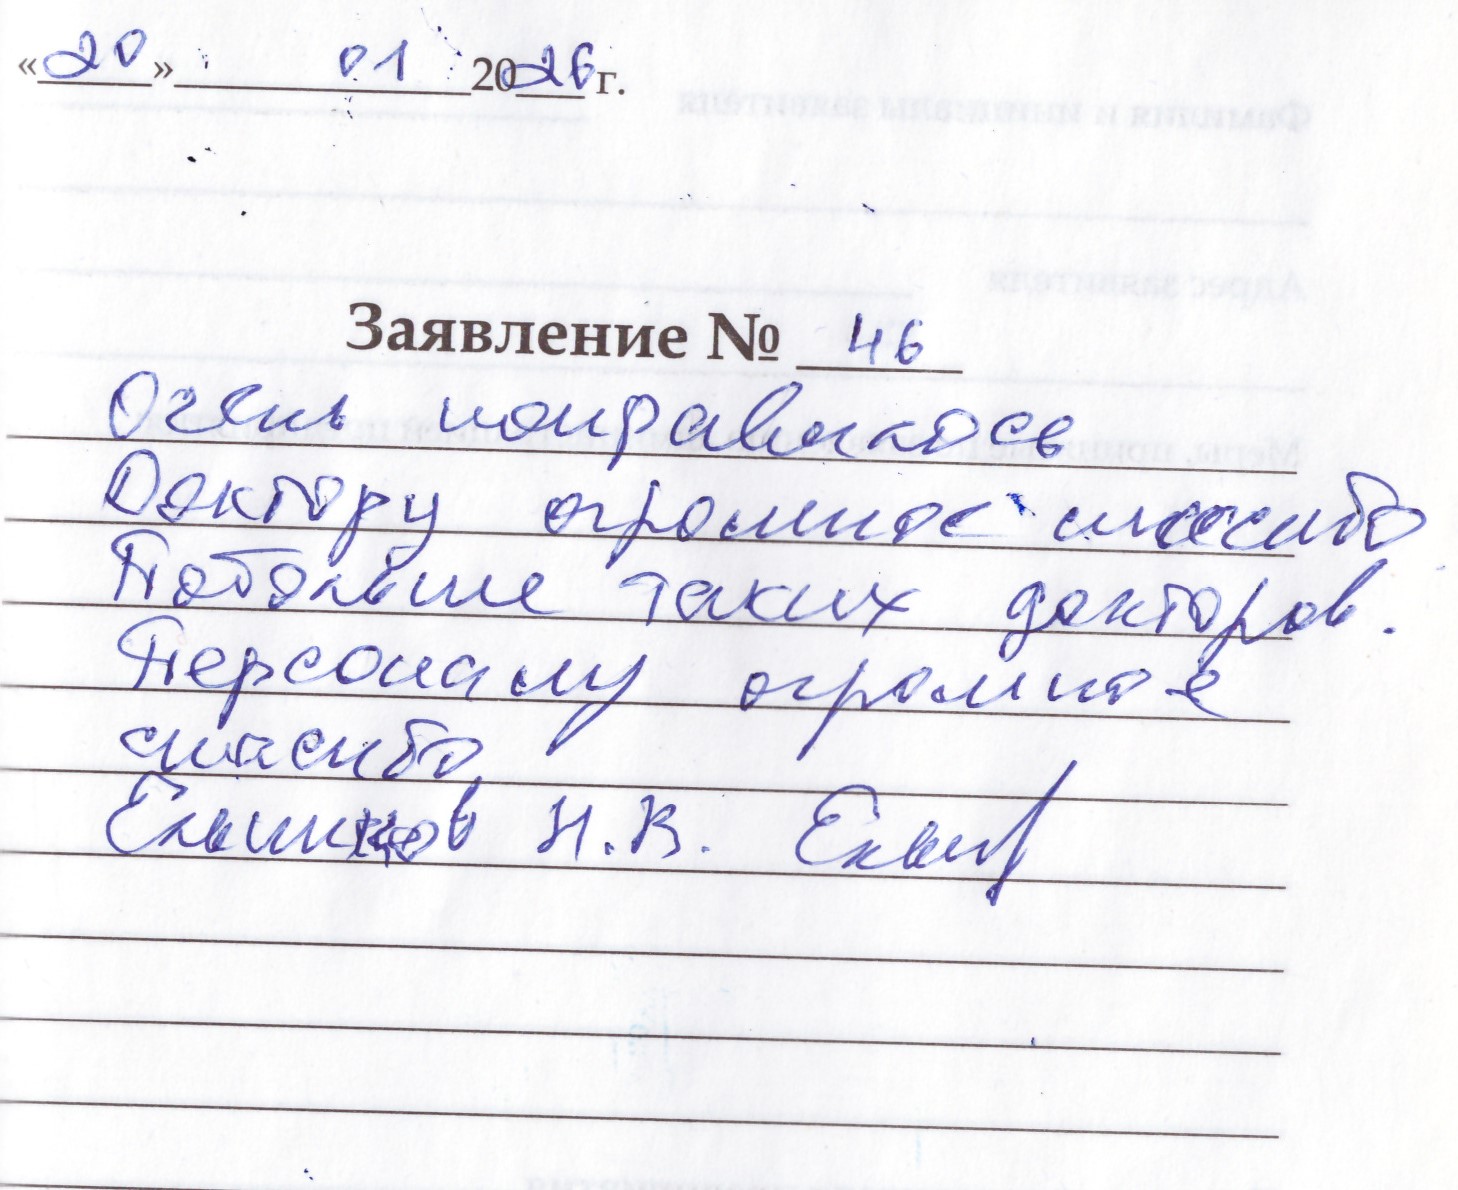 «20» 01 2026 г.
Заявление № 46
Очень понравилось
Доктору огромное спасибо
Побольше таких докторов.
Персоналу огромное
спасибо
Н.В.